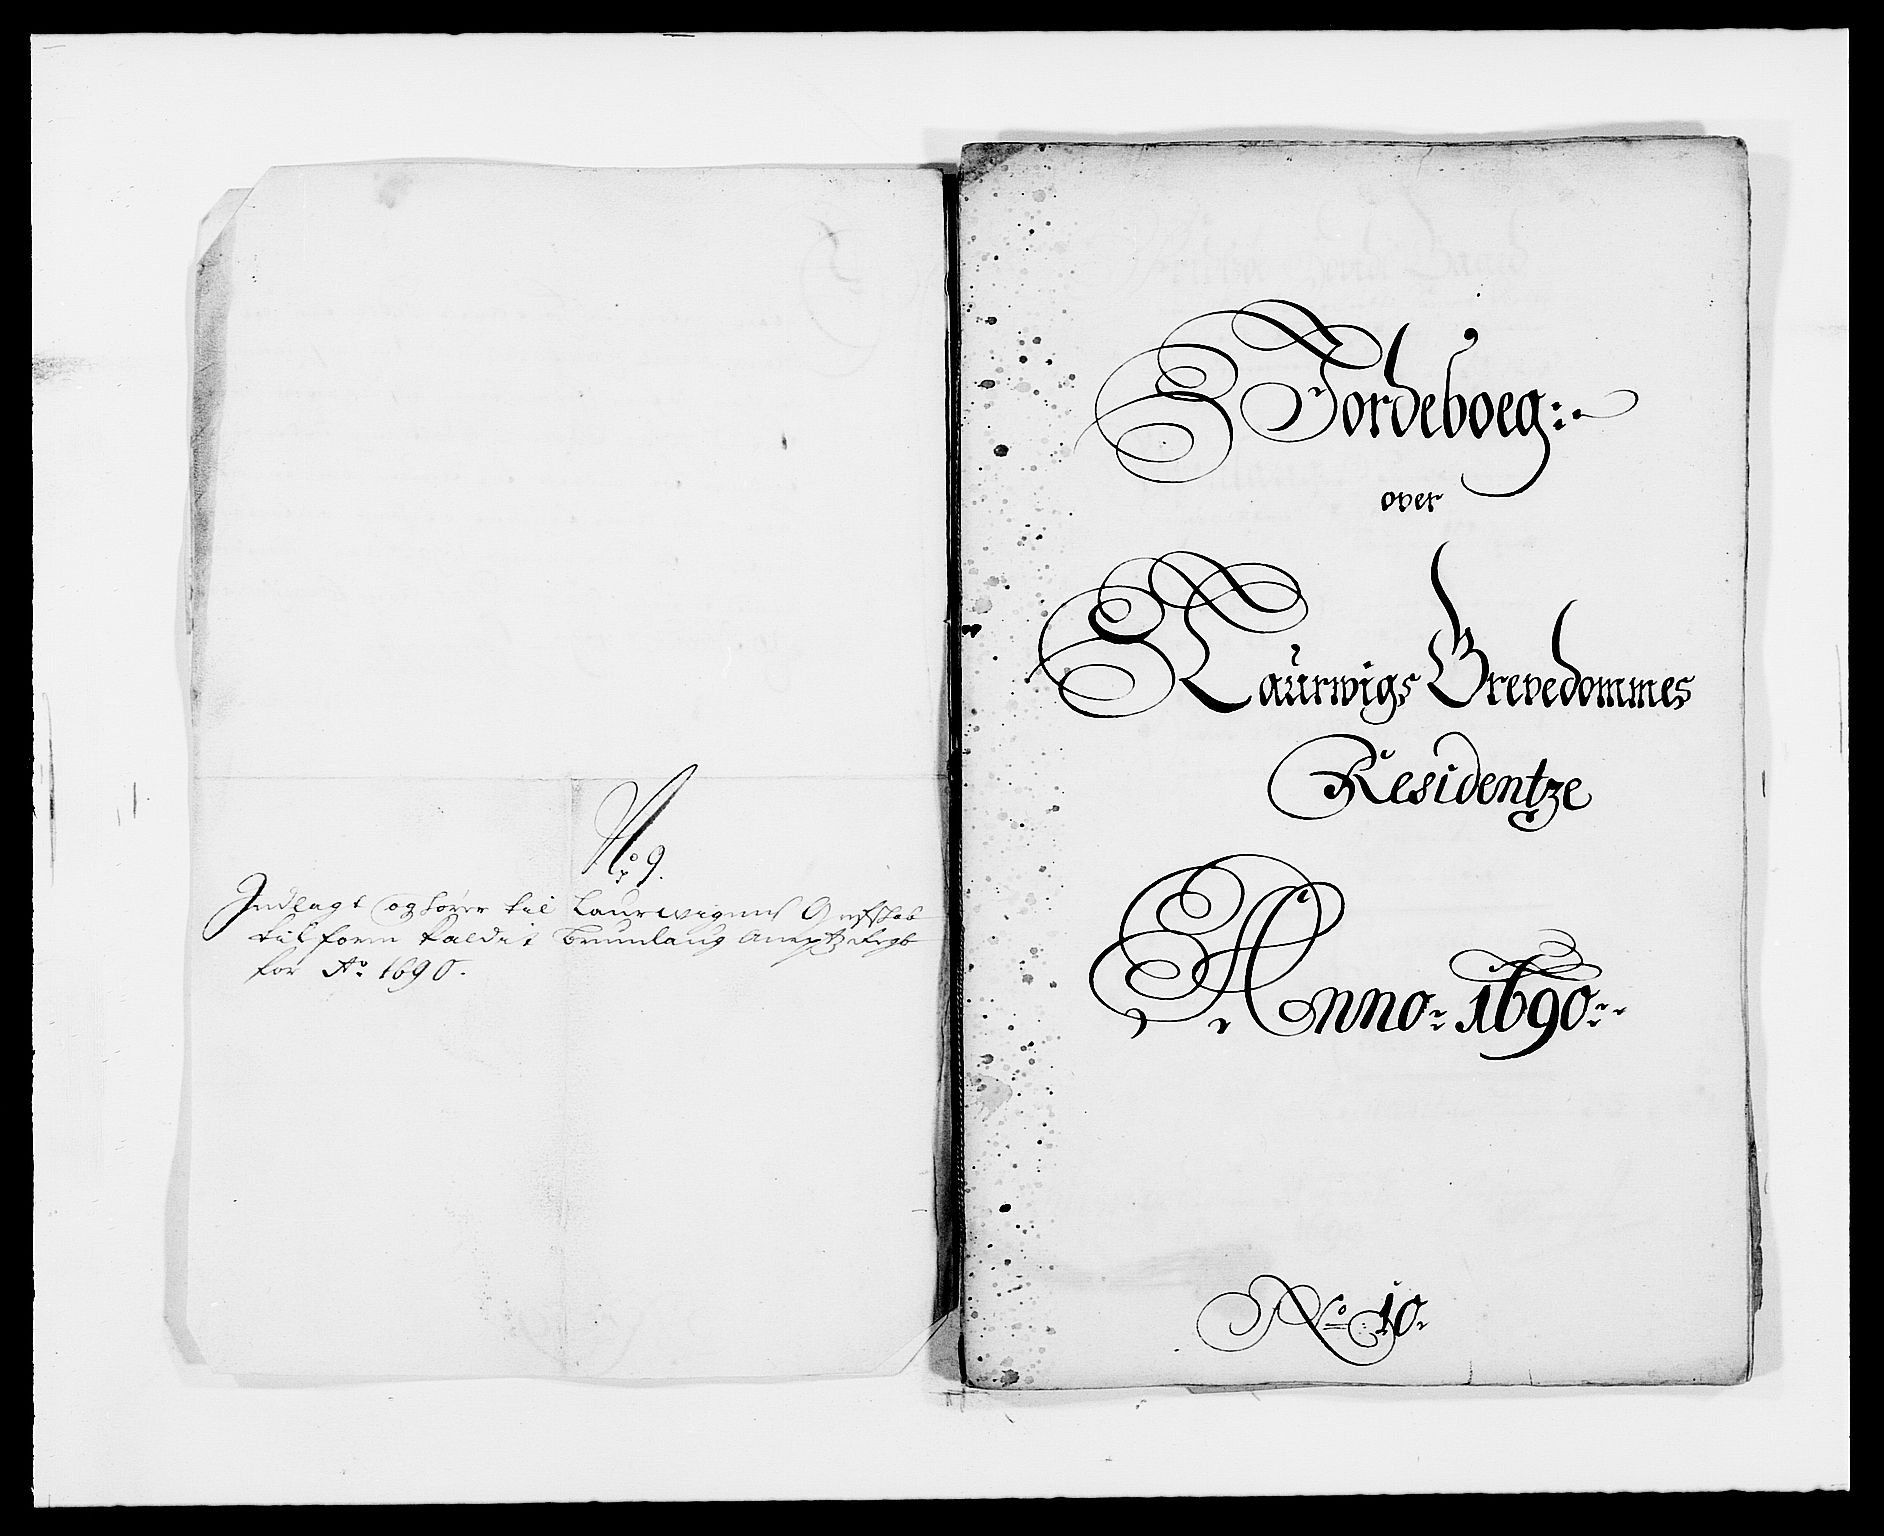 No 9.
Indlagt og hører til Laurwigens Grefskab
tilforn kaldit Brunlaug
for Ao 1690.
Jordeboeg
over
Laurwigs Grevedommes
Residentze
Anno 1690
No 10